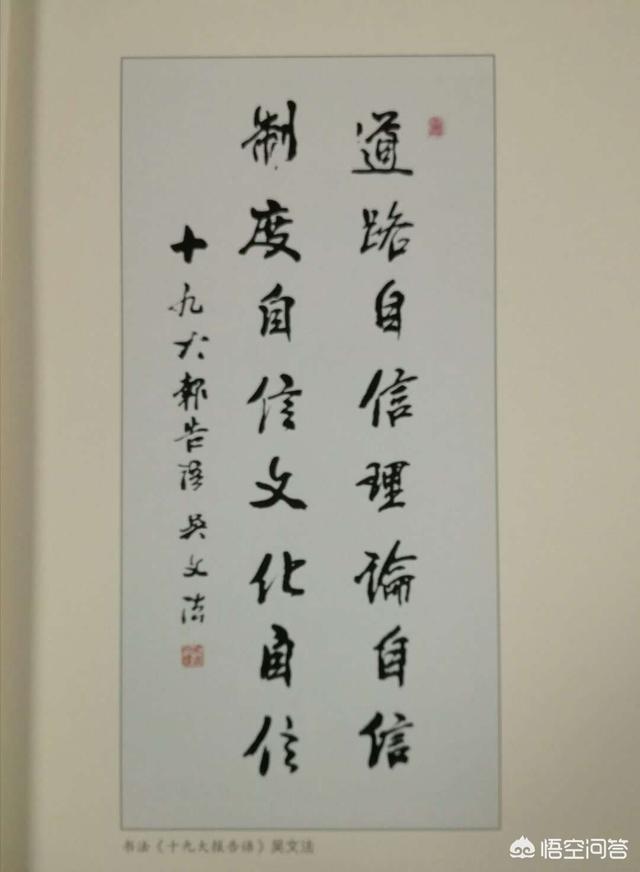 道路自信理論自信
制度自信文化自信
十九大報告語 吴文法
书法《十九大报告语》吴文法
悟空问答